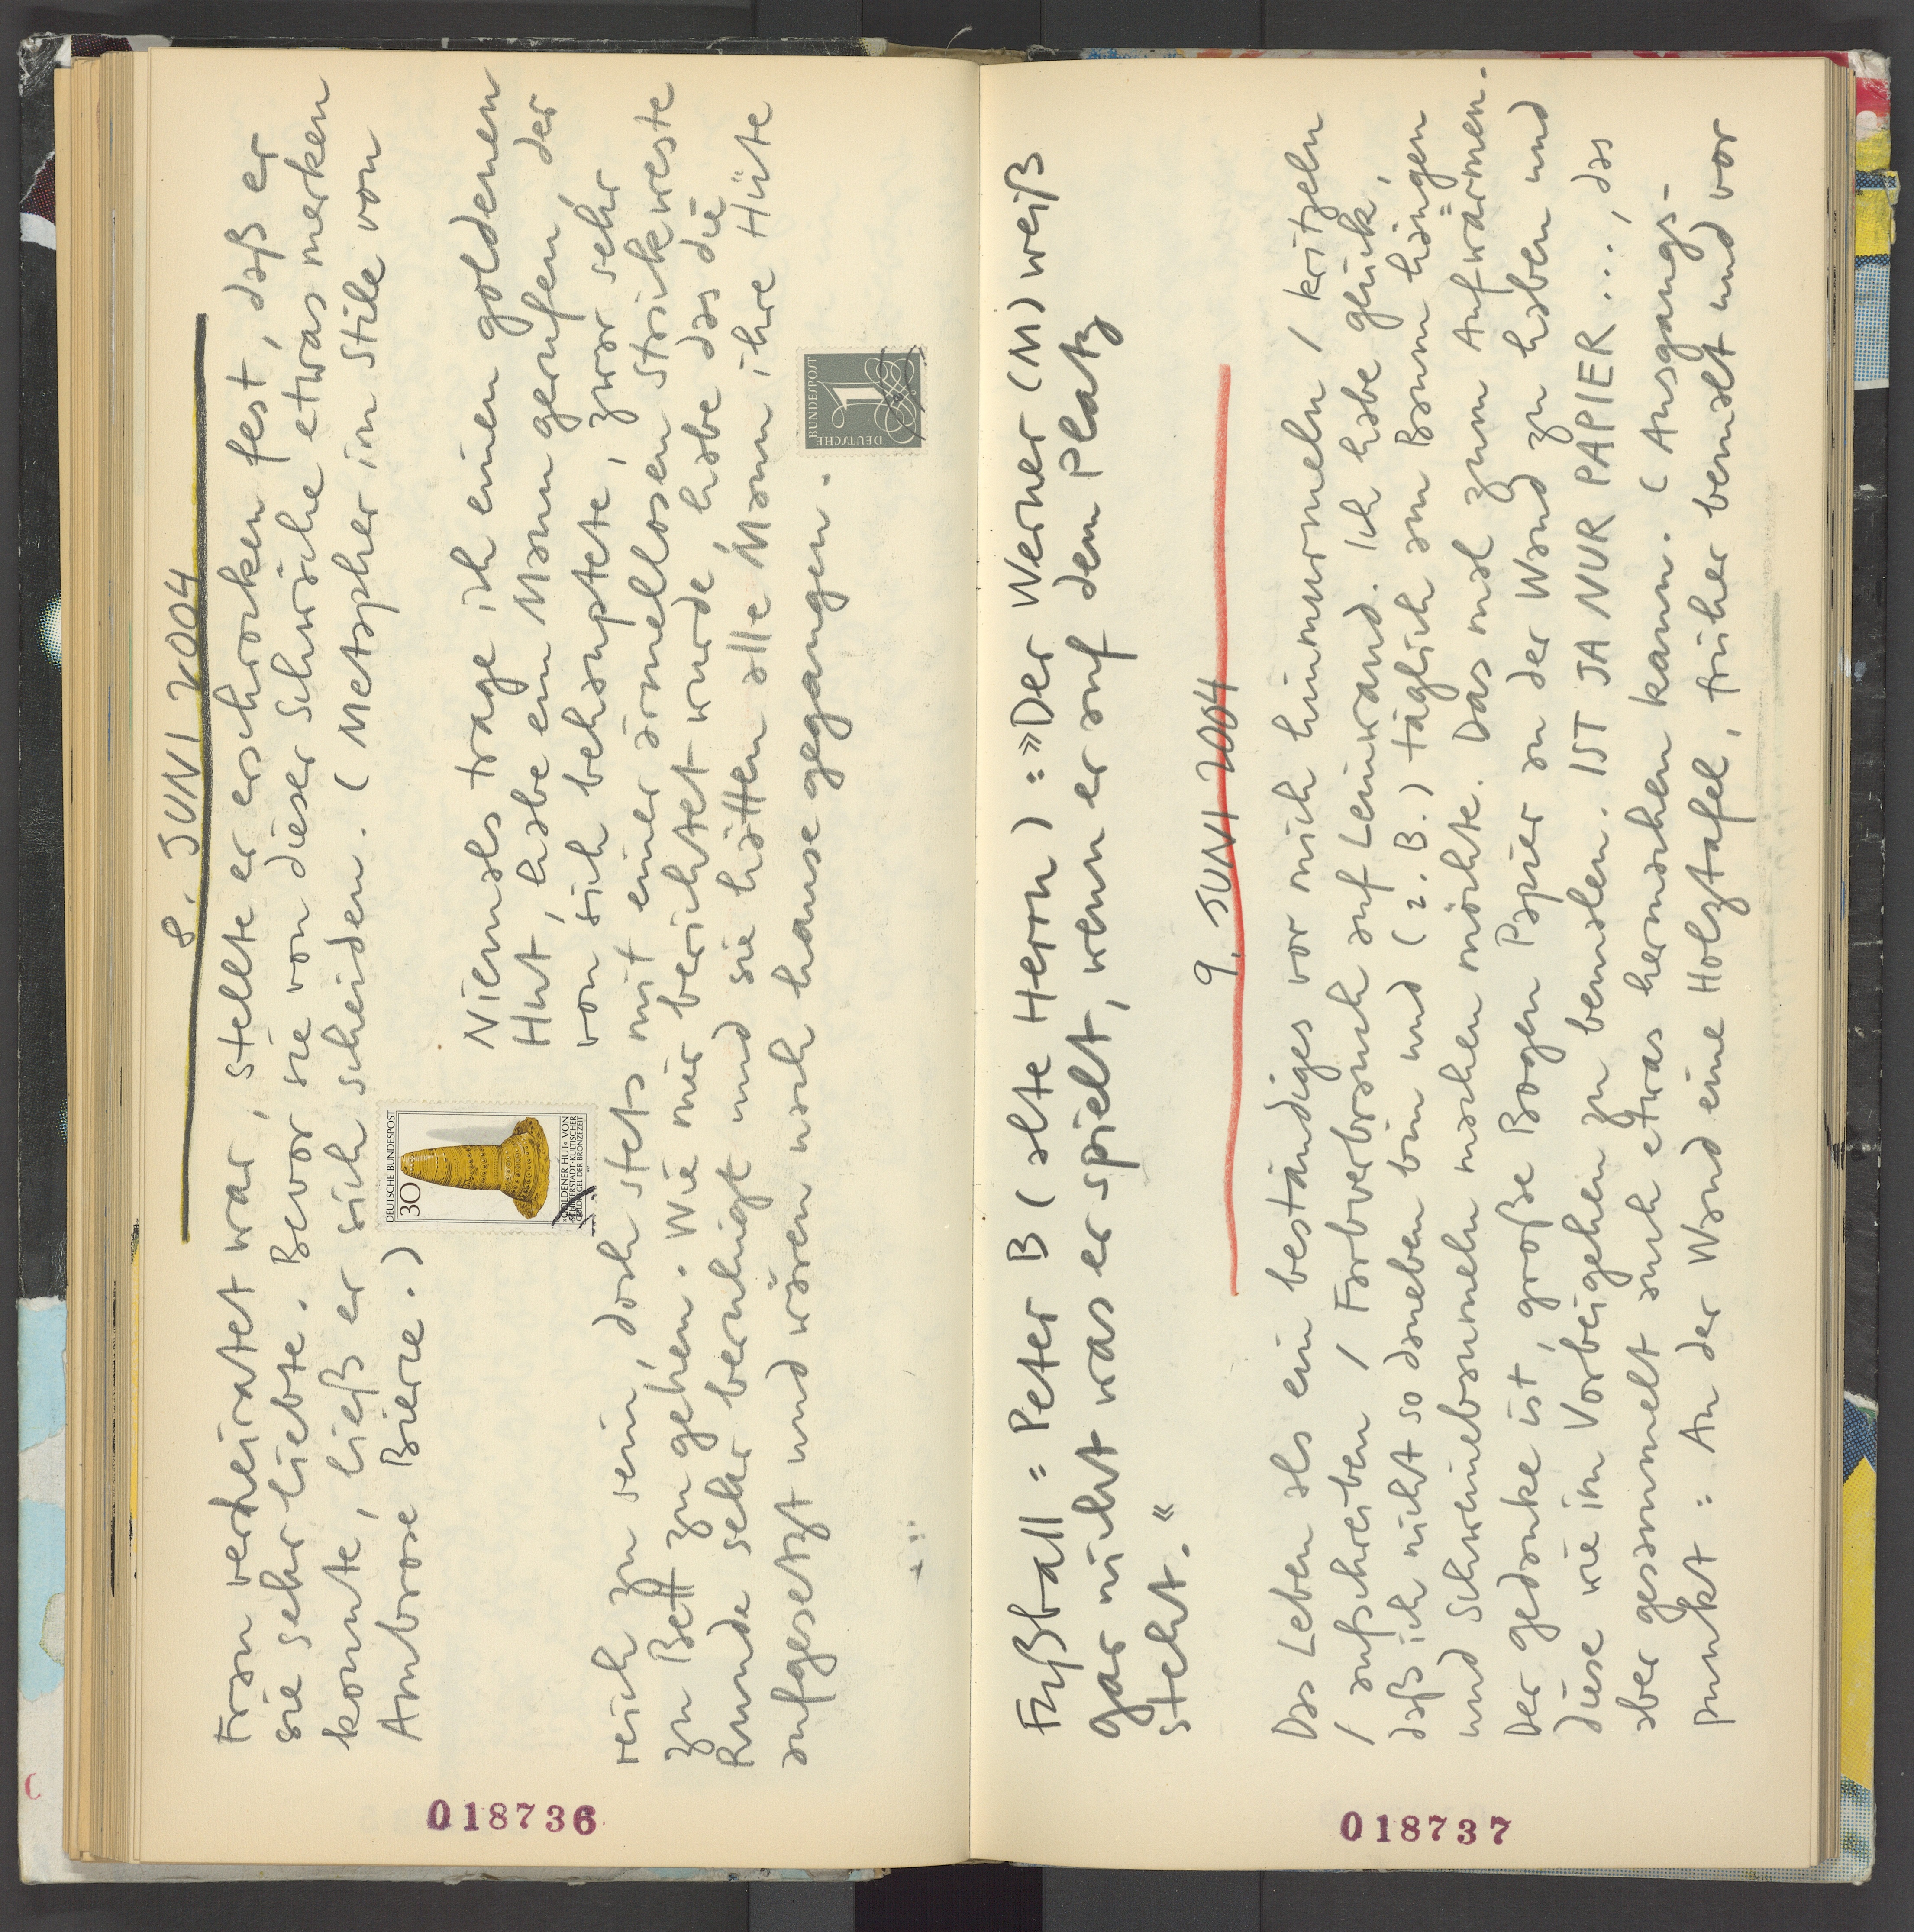 8. JUNI 2004
Frau verheiratet war, stellte er erschrocken fest, daß er
sie sehr liebte. Bevor sie von dieser Schwäche etwas merken
konnte, ließ er sich scheiden. (Metapher im Stile von
Ambrose Bierce.)
DEUTSCHE BUNDESPOST
30
GOLDENER HUT« VON
SCHIFFERSTADT · KULTISCHER
GOLDKEGEL DER BRONZEZEIT
Niemals trage ich einen goldenen
Hut, habe ein Mann gerufen, der
von sich behauptete, zwar sehr
reich zu sein, doch stets mit einer ärmellosen Strickweste
zu Bett zu gehen. Wie mir berichtet wurde habe das die
Runde sehr beruhigt und sie hätten alle Mann ihre Hüte
aufgesetzt und wären nach hause gegangen.
DEUTSCHE
BUNDESPOST
1
018736
Fußball = Peter B (alte Herrn) : »Der Werner (M) weiß
gar nicht was er spielt, wenn er auf dem Platz
steht.«
9. JUNI 2004
Das Leben als ein beständiges vor mich hinmurmeln / kritzeln
/ aufschreiben / Farbverbrauch auf Leinwand. Ich habe glück,
daß ich nicht so daneben bin und (z.B.) täglich am Baum hängen
und Schweinebaumeln machen möchte. Das mal zum Aufwärmen.
Der gedanke ist, große Bogen Papier an der Wand zu haben und
diese wie im Vorbeigehen zu bemalen. IST JA NUR PAPIER ..., das
aber gesammelt auch etwas hermachen kann. (Ausgangs-
punkt : An der Wand eine Holztafel, früher bemalt und vor
018737